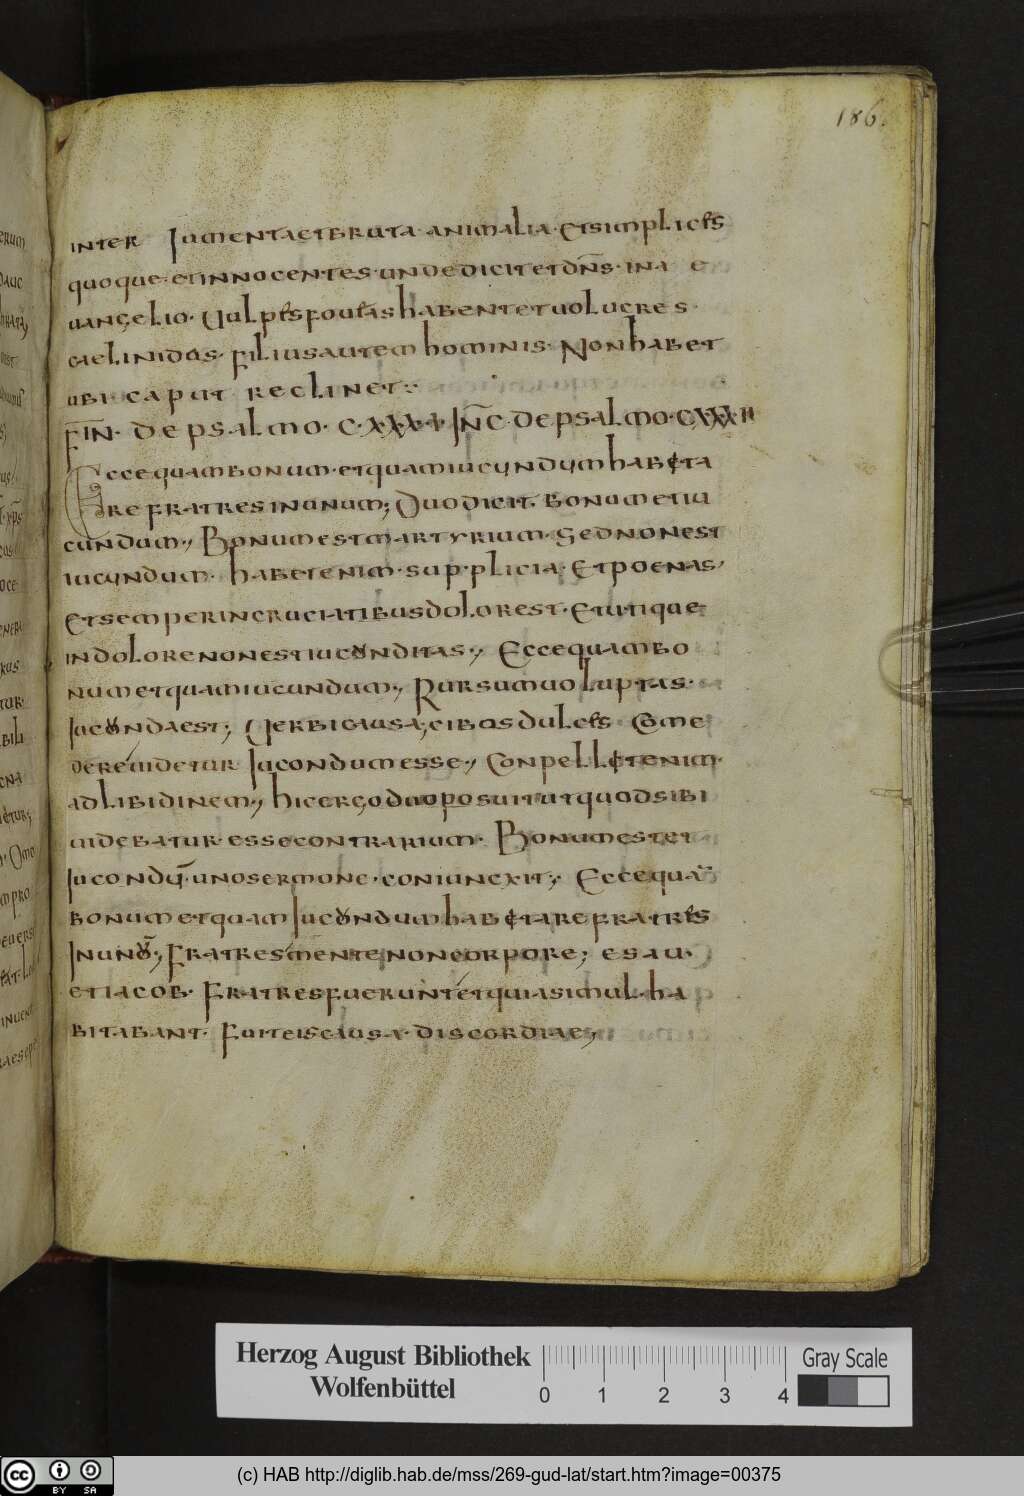 186.
INTER Iumentaetbruta· animalia· etsimplices
quoque· etinnocentes· undedicitetdn̄s· ina e
uangelio· Uulpesfoueashabentetuolucres·
caelinidos· filiusautemhominis· Nonhabet
ubi caput reclinet:·
FIN̄· DEpsalmo· C·XXXI· IN̄C·DEpsalmo·CXXXII
Eccequambonum·etquamiucundumhabita
refratresinunum; Quodicit· bonumetiu
cundum; Bonumestmartyrium· sednonest
iucundum· habetenim·sup·plicia· Etpoenas,
Etsemperincruciatibusdolorest· Etutique
indolorenonestiucunditas; Eccequambo
numetquamiucundum; Rursumuoluptas·
Iucundaest; Uerbicausa; cibosdulces Come
dereuidetur Iucondumesse; Conpellitenim·
adlibidinem; hicergoduoposuitutquodsibi
uidebatur·essecontrarium· Bonumestet
Iucondū·unosermone·coniunexit; Eccequā
bonumetquamIucundumhabitarefratres
Inunū; Fratresmentenoncorpore; esau·
etiacob· Fratresfueruntetquiasimul·ha
bitabant· Fuiteiscausa· discordiae;
Herzog August Bibliothek
Wolfenbüttel
0 1 2 3 4
Gray Scale
cc BY SA
(c) HAB http://diglib.hab.de/mss/269-gud-lat/start.htm?image=00375